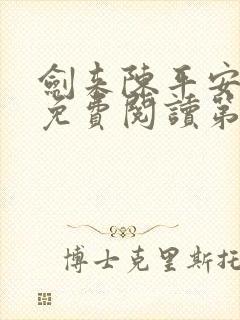 劍来陳平安
免費閱讀第
博士克里斯托